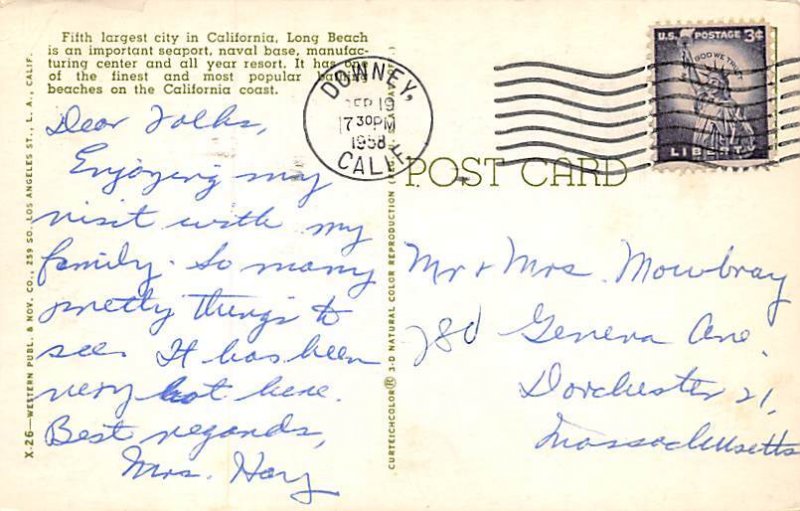 Fifth largest city in California, Long Beach
is an important seaport, naval base, manufac-
turing center and all year resort. It has
of the finest and most popular bathing
beaches on the California coast.
Dear Folks,
Enjoying my
visit with my
family. So many
pretty things to
see. It has been
very hot here.
Best regards,
Mrs. Hay
X-26—WESTERN PUBL. & NOV. CO., 259 SO. LOS ANGELES ST., L. A., CALIF.
CURTEICHCOLOR® 3-D NATURAL COLOR REPRODUCTION
DOWNEY,
SEP 19
7 30 PM
1958
CALIF.
U.S. POSTAGE 3¢
IN GOD WE TRUST
LIBERTY
POST CARD
Mr & Mrs. Mowbray
Geneva Ave.
Dorchester 21,
Massachusetts